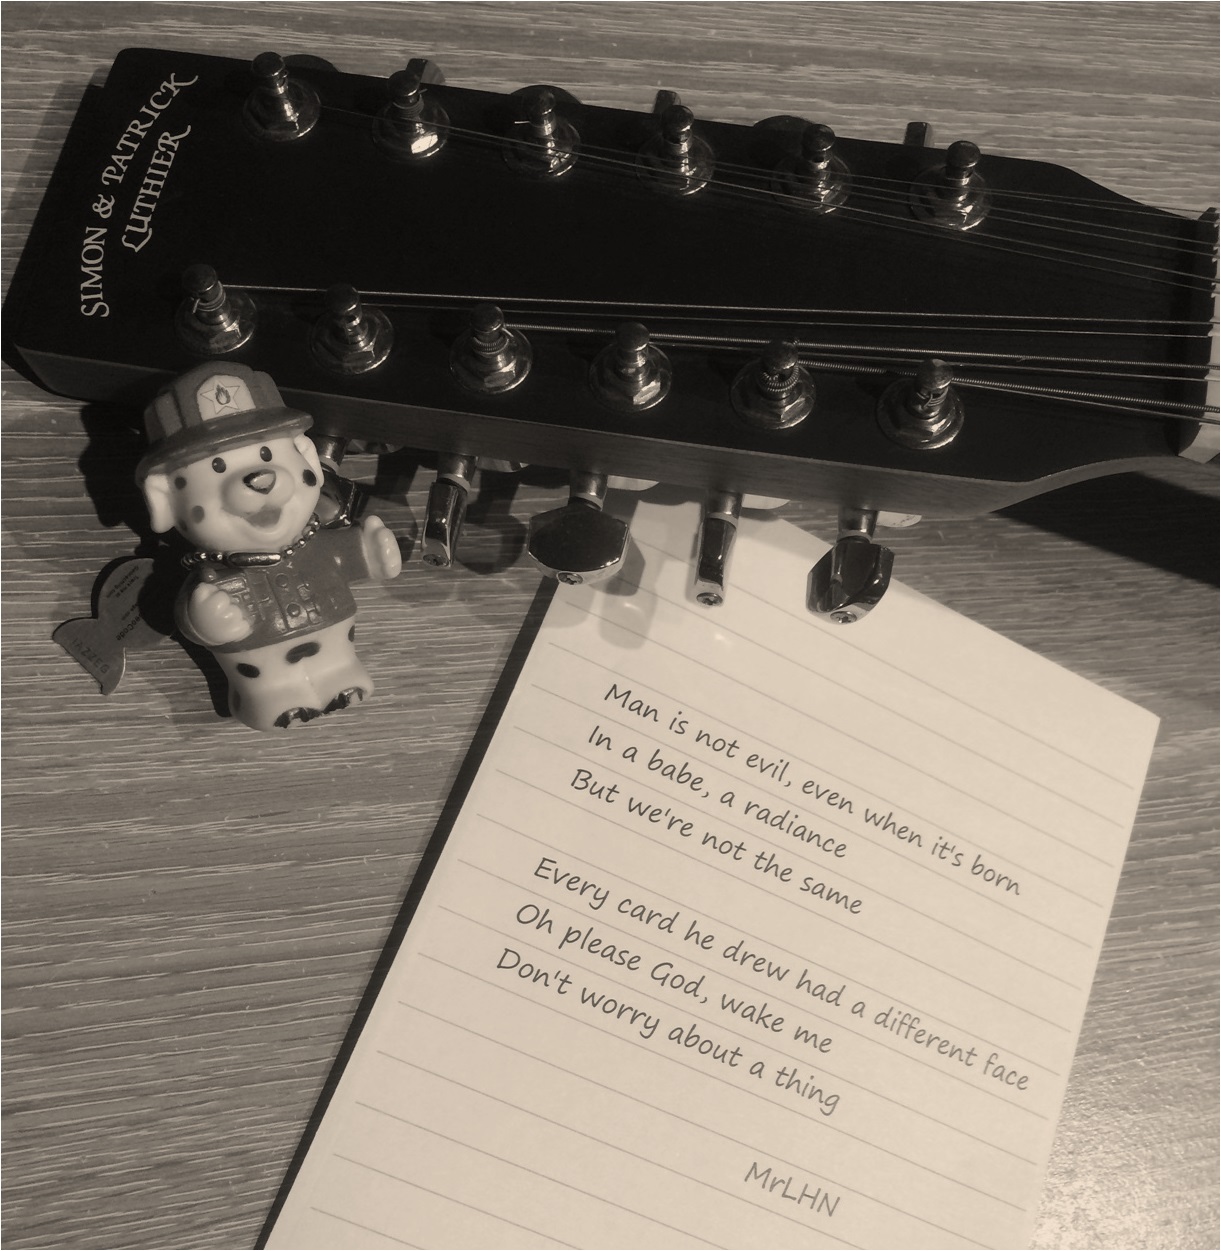 SIMON & PATRICK
LUTHIER
Man is not evil, even when it's born
In a babe, a radiance
But we're not the same
Every card he drew had a different face
Oh please God, wake me
Don't worry about a thing
MrLHN